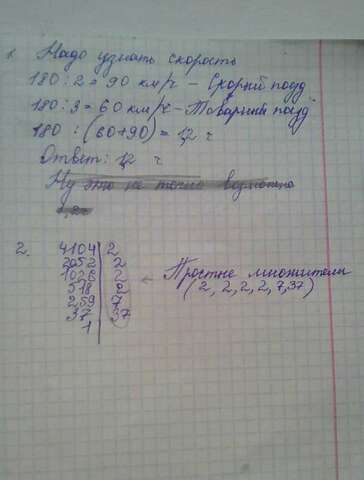 1. Надо узнать скорость
180 : 2 = 90 км/ч - Скорый поезд
180 : 3 = 60 км/ч - Товарный поезд
180 : (60+90) = 1,2 ч
Ответ: 1,2 ч
Ну это не точно возможно
2.
4104 | 2
2052 | 2
1026 | 2
518 | 2
259 | 7
37 | 37
1
← Простые множители
(2, 2, 2, 2, 7, 37)